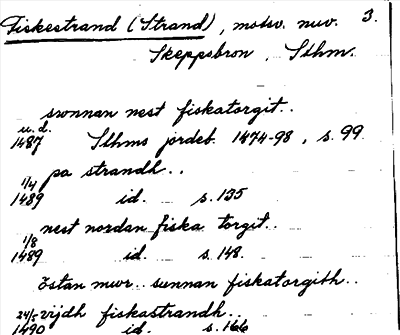 Fiskestrand (Strand), motsv. nuv. 3.
Skeppsbron, Sthm.
sunnan nest fiskatorgit..
u.d.
1487 Sthms jordeb. 1474-98, s. 99
pa strandh..
1/4
1489 id. s. 135
nest nordan fiska torgit..
1/8
1489 id. s. 148.
östan mwr.. sunnan fiskatorgith..
24/5 vijdh fiskastrandh..
1490 id. s. 166